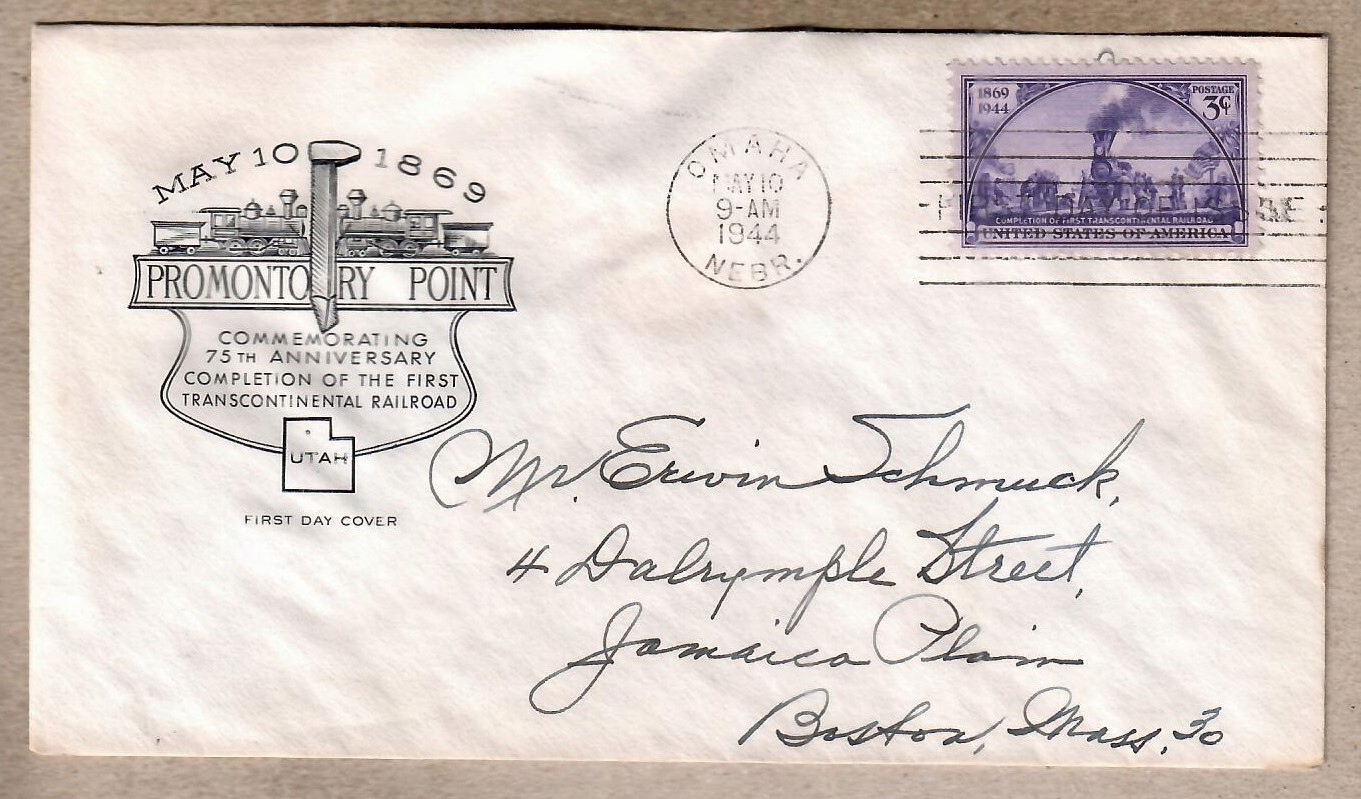 MAY 10 1869
PROMONTORY POINT
COMMEMORATING
75TH ANNIVERSARY
COMPLETION OF THE FIRST
TRANSCONTINENTAL RAILROAD
UTAH
FIRST DAY COVER
OMAHA
MAY 10
9-AM
1944
NEBR.
1869
1944
POSTAGE
3¢
COMPLETION OF FIRST TRANSCONTINENTAL RAILROAD
UNITED STATES OF AMERICA
Mr. Erwin Schmuck,
4 Dalrymple Street,
Jamaica Plain
Boston, Mass. 30